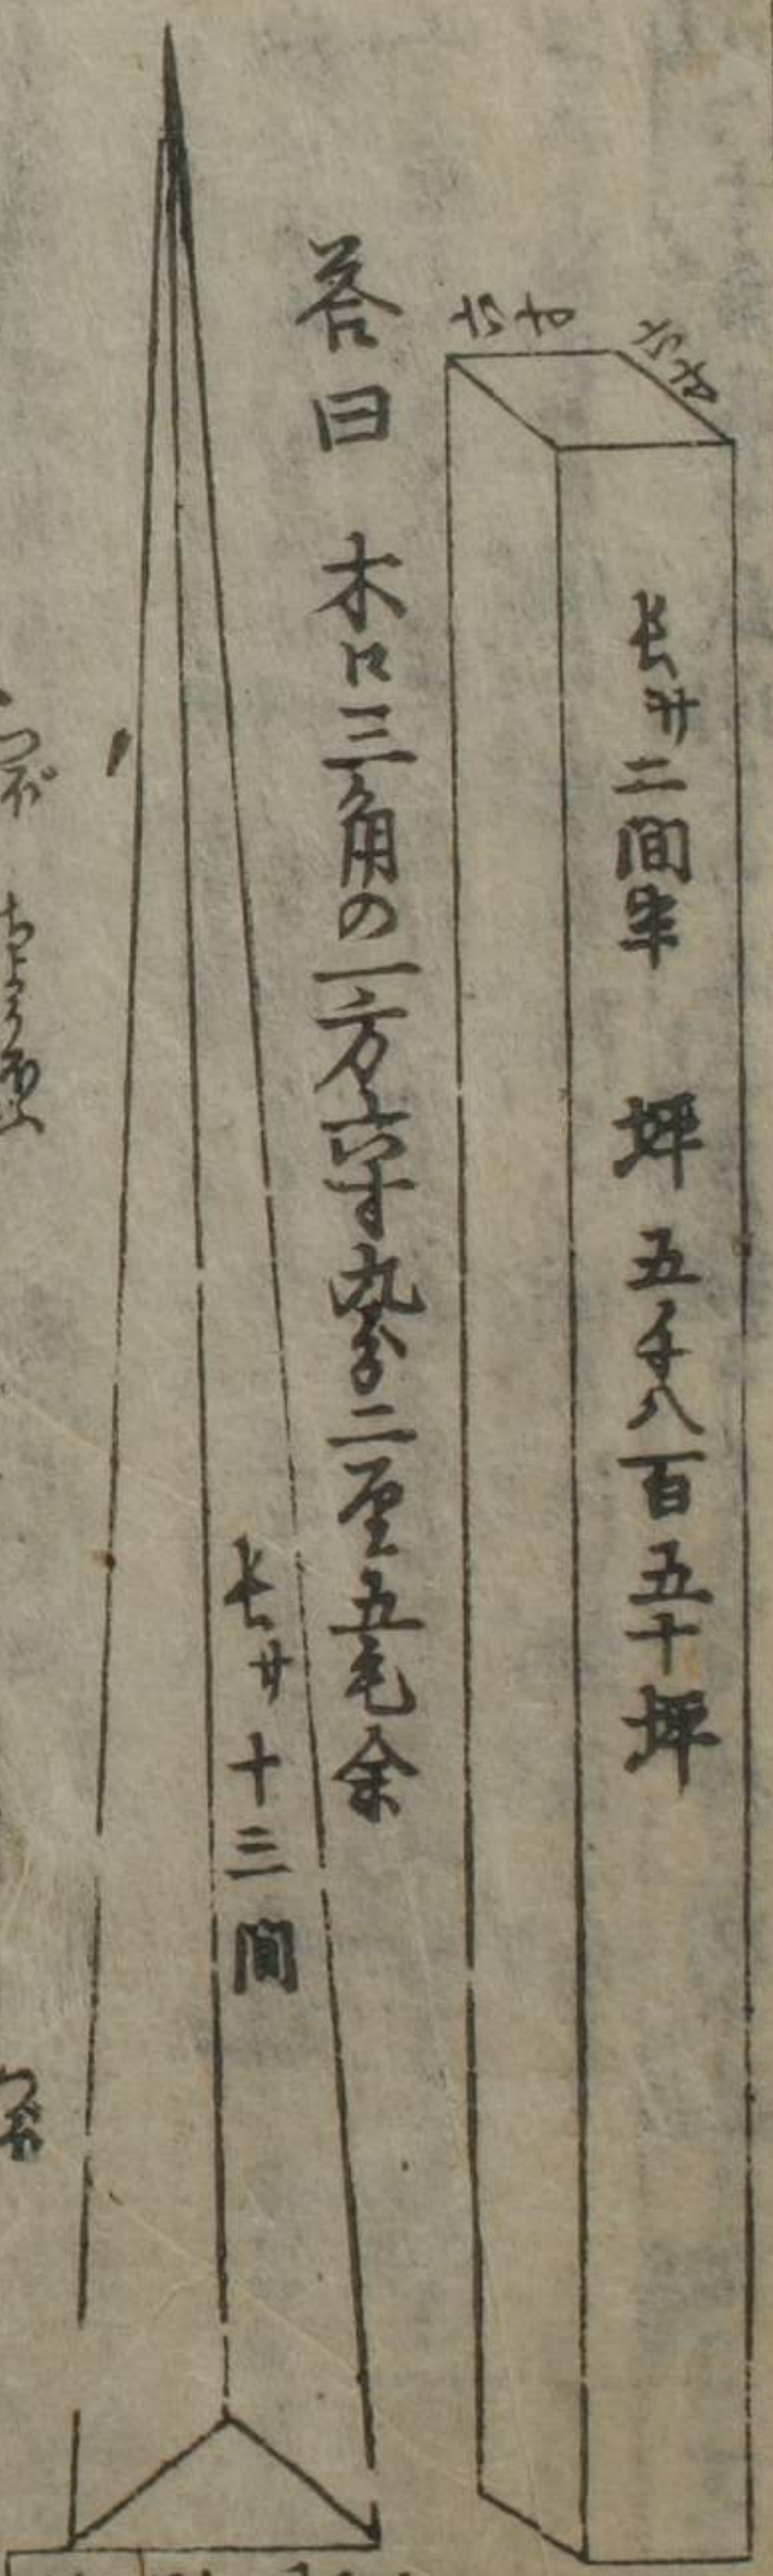 六寸
六寸
長サ二間半 坪 五千八百五十坪
荅曰 木口三角の一方六寸九分二厘五毛余
長サ十三間